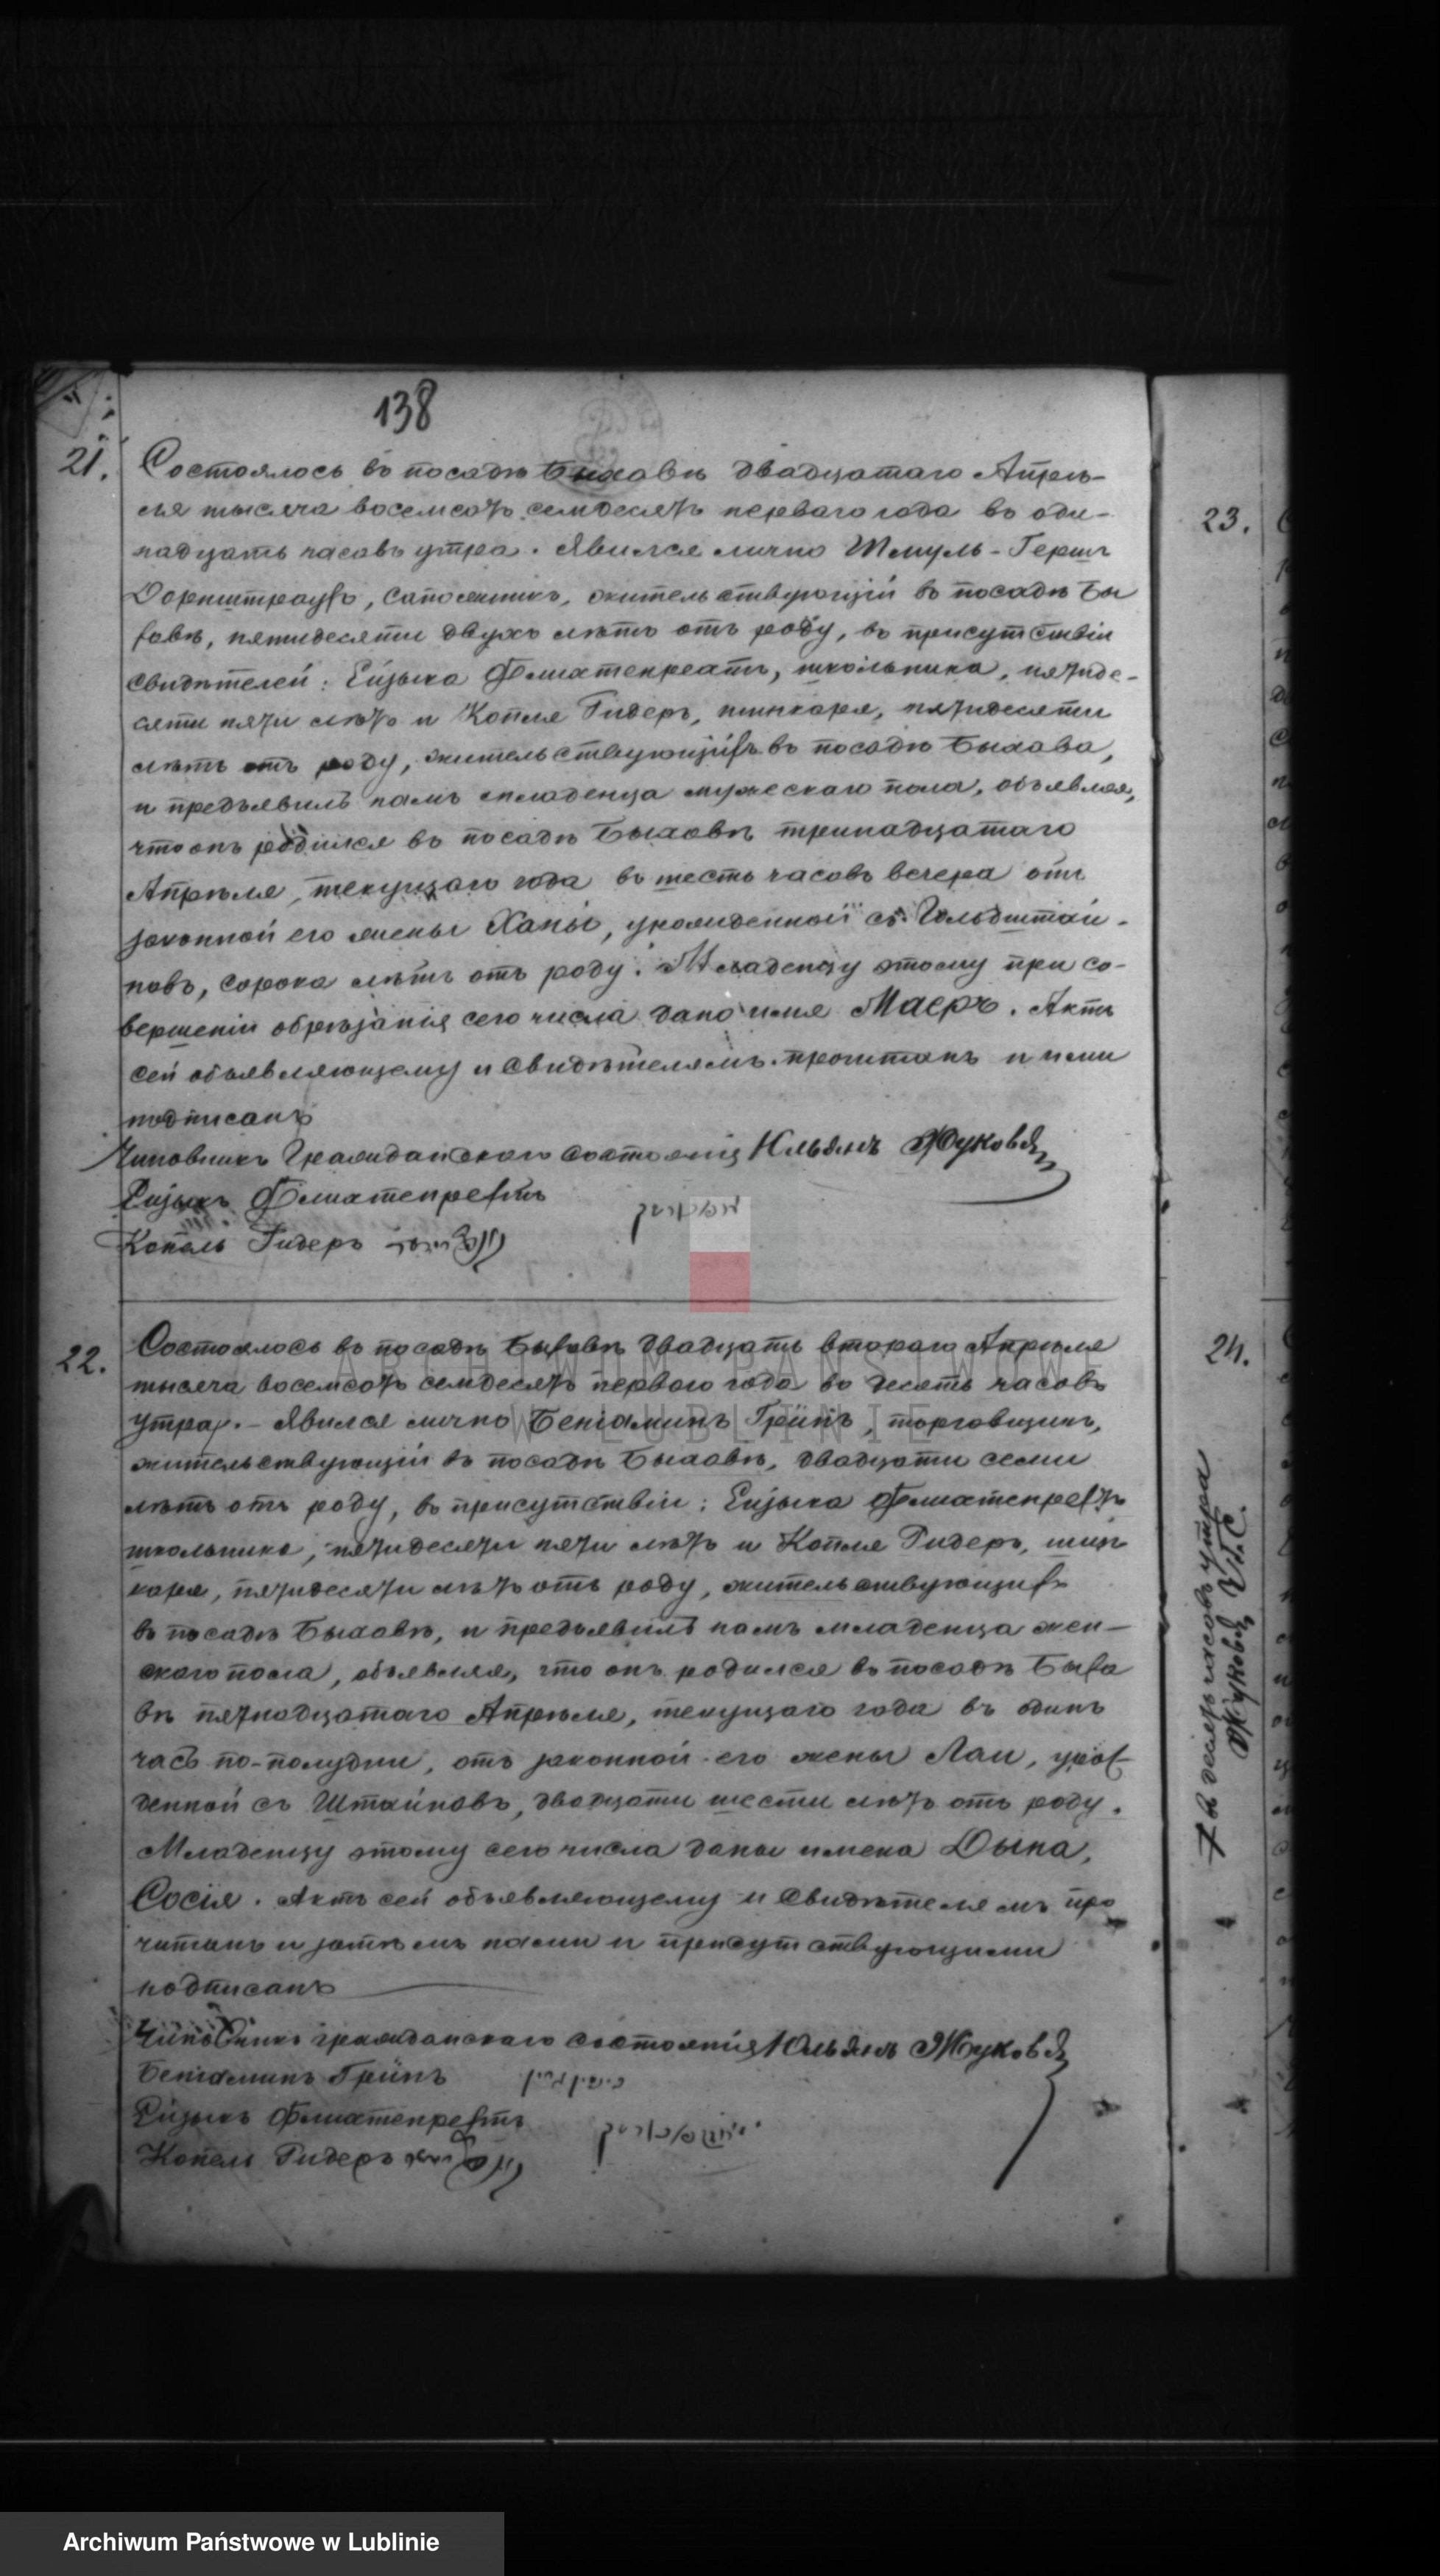 138
21.
Состоялось въ посадѣ Быхавѣ двадцатаго Апрѣ-
ля тысяча восемсотъ семдесятъ перваго года въ оди-
надцать часовъ утра. Явился лично Шмуль-Герш
Дорнштраухъ, сапожникъ, жительствующій въ посадѣ Бы
хавѣ, пятидесяти двухъ лѣтъ отъ роду, въ присутствіи
свидѣтелей: Ейзыка школьника, пятиде-
сяти пяти лѣтъ и Копля Ридеръ, шинкаря, пятидесяти
лѣтъ отъ роду, жительствующихъ въ посадѣ Быхава,
и предъявилъ намъ младенца мужескаго пола, объявляя,
что онъ родился въ посадѣ Быхавѣ тринадцатаго
Апрѣля, текущаго года въ шесть часовъ вечера отъ
законной его жены Ханы, урожденной съ Гольдштай-
новъ, сорока лѣтъ отъ роду. Младенцу этому при со-
вершеніи обрѣзанія сего числа дано имя Маеръ. Актъ
сей объявляющему и свидѣтелямъ прочитанъ и ими
подписанъ
Чиновникъ Гражданскаго состоянія Юльянъ Жуковъ
Ейзыкъ
Копель Ридеръ
22.
Состоялось въ посадѣ Быхавѣ двадцать втораго Апрѣля
тысяча восемсотъ семдесятъ перваго года въ десять часовъ
утра. - Явился лично Беніаминъ Гринъ, торговщикъ,
жительствующій въ посадѣ Быхавѣ, двадцати семи
лѣтъ отъ роду, въ присутствіи: Ейзыка
школьника, пятидесяти пяти лѣтъ и Копля Ридеръ, шин
каря, пятидесяти лѣтъ отъ роду, жительствующихъ
въ посадѣ Быхавѣ, и предъявилъ намъ младенца жен-
скаго пола, объявляя, что онъ родился въ посадѣ Быха
вѣ пятнадцатаго Апрѣля, текущаго года въ одинъ
часъ по-полудни, отъ законной его жены Лаи, урож
денной съ Штайновъ, двадцати шести лѣтъ отъ роду.
Младенцу этому сего числа даны имена Дына,
Сосія. Актъ сей объявляющему и свидѣтелямъ про
читанъ и затѣмъ нами и присутствующими
подписанъ
Чиновникъ гражданскаго состоянія Юльянъ Жуковъ
Беніаминъ Гринъ
Ейзыкъ
Копель Ридеръ
23.
24.
часовъ утра
Жуковъ
ARCHIWUM PAŃSTWOWE
W LUBLINIE
Archiwum Państwowe w Lublinie